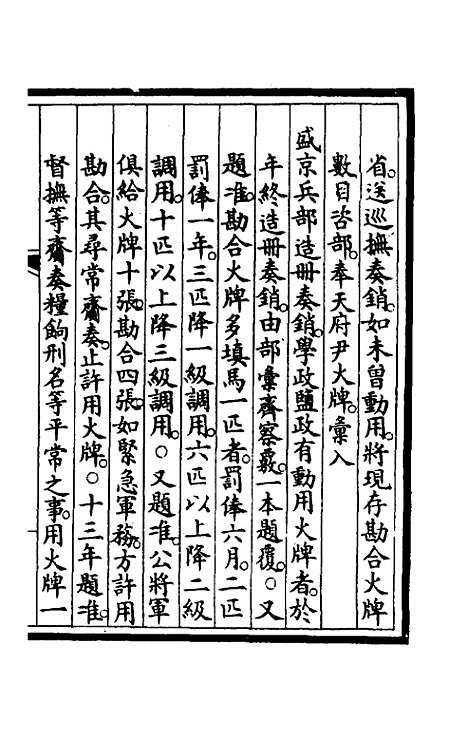 省。送巡撫奏銷。如未曾動用。將現存勘合火牌
數目咨部。奉天府尹火牌。彙入
盛京兵部造冊奏銷。學政鹽政有動用火牌者。於
年終造冊奏銷。由部彙齊察覈。一本題覆。○又
題准。勘合火牌多填馬一匹者。罰俸六月。二匹
罰俸一年。三匹降一級調用。六匹以上降二級
調用。十匹以上降三級調用。○又題准。公將軍
俱給火牌十張。勘合四張。如緊急軍務。方許用
勘合。其尋常齎奏。止許用火牌。○十三年題准。
督撫等齎奏糧餉刑名等平常之事。用火牌一